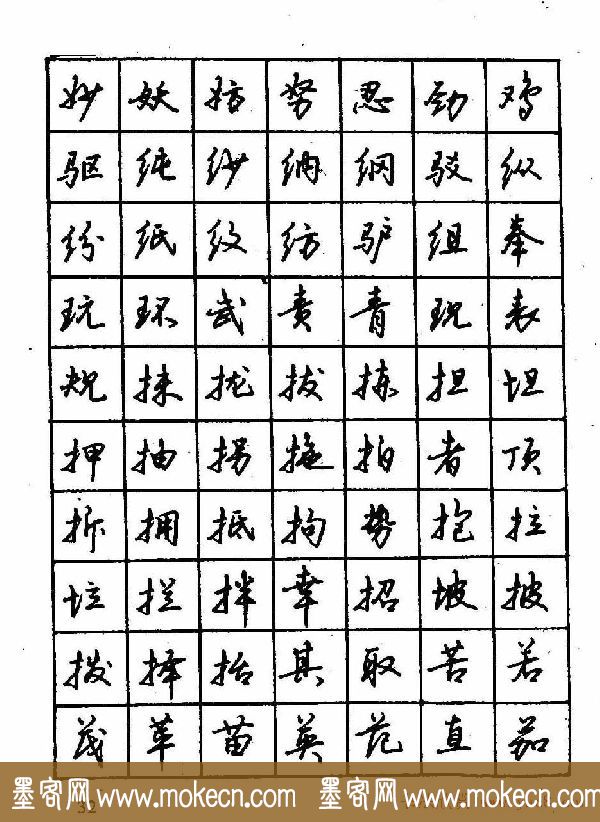 妙 妖 妨 努 忍 劲 鸡
驱 纯 纱 纳 纲 驳 纵
纷 纸 纹 纺 驴 纽 奉
玩 环 武 责 青 现 表
规 抹 拢 拔 拣 担 坦
押 抽 拐 拖 拍 者 顶
拆 拥 抵 拘 势 抱 拉
垃 拦 拌 幸 招 坡 披
拨 择 括 其 取 苦 若
茂 革 苗 英 范 直 茄
32
墨客网 www.mokecn.com 墨客网 www.mokecn.com